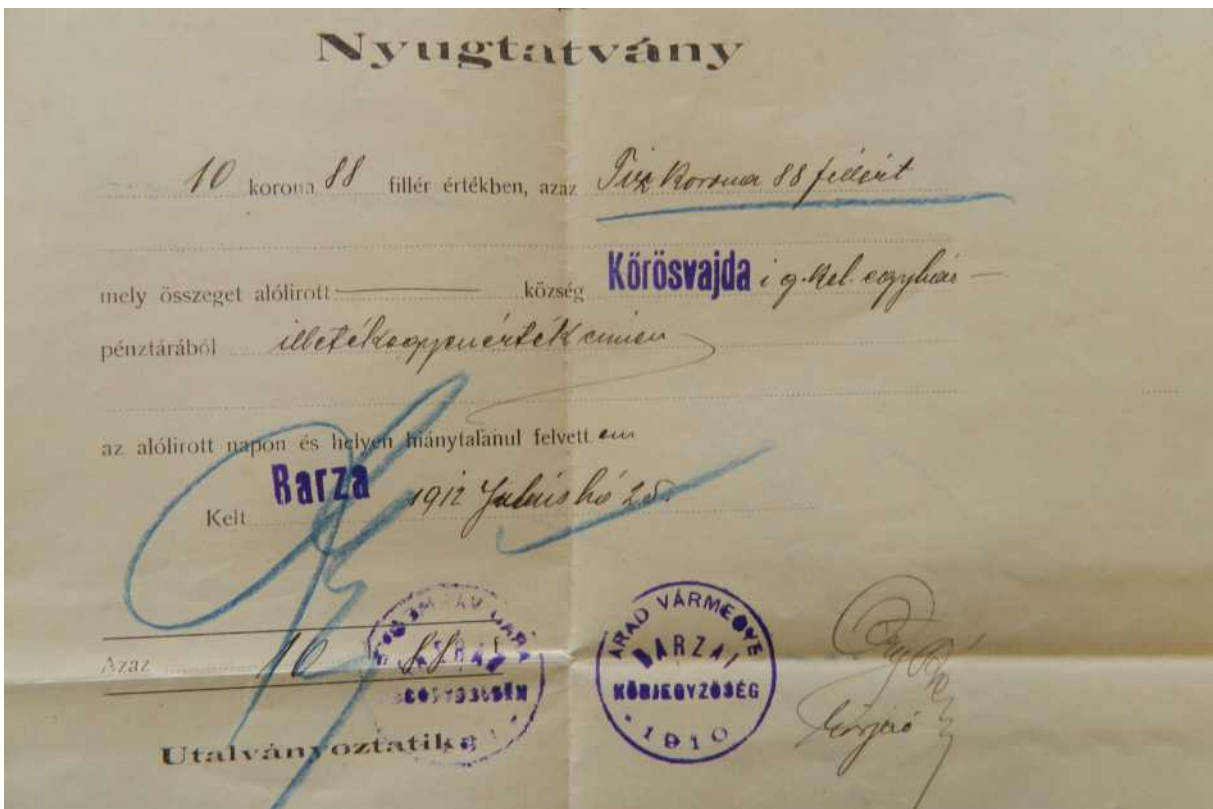 Nyugtatvány
10 korona 88 fillér értékben, azaz Tiz Korona 88 fillért
mely összeget alólirott község Kőrösvajda i g. kel. egyház
pénztárából illetékegyenérték címen
az alólirott napon és helyen hiánytalanul felvettem
Kelt Barza 1912 hó 25.
Azaz 10 88 f
ARAD VÁRMEGYE
BARZAI
KÖRJEGYZŐSÉG
1910
Utalványoztatik
körjező